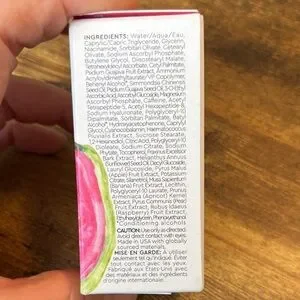 INGREDIENTS: Water/Aqua/Eau,
Caprylic/Capric Triglyceride, Glycerin,
Niacinamide, Sorbitan Olivate, Cetearyl
Olivate, Sodium Ascorbyl Phosphate,
Butylene Glycol, Dimethyl
Tetrahexyldecyl Ascorbate, Cetyl Palmitate,
Psidium Guajava Fruit Extract, Ammonium
Acryloyldimethyltaurate/VP Copolymer,
Benzyl Alcohol*, Simmondsia Chinensis
Seed Oil, Psidium Guajava Seed Oil, 3-O-Ethyl
Ascorbic Acid, Ascorbyl Glucoside, Magnesium
Ascorbyl Phosphate, Caffeine, Acetyl
Tetrapeptide-5, Acetyl Hexapeptide-8,
Sodium Hyaluronate, Polyglyceryl-10
Palmitate, Sorbitan Palmitate, Bakuchiol,
Hydroxyacetophenone, Caprylyl
Glycol, Cyanocobalamin, Haematococcus
Pluvialis Extract, Sucrose Stearate,
1,2-Hexanediol, Citric Acid, Polyglyceryl-10
Oleate, Sorbitan Oleate, Sodium
Phytate, Tocopherol, Fraxinus Excelsior
Bark Extract, Helianthus Annuus
(Sunflower) Seed Oil, Decyl Glucoside,
Lauryl Glucoside, Pyrus Malus
(Apple) Fruit Extract, Potassium
Citrate, Silanetriol, Musa Sapientum
(Banana) Fruit Extract, Lecithin,
Polyglyceryl-10 Laurate, Prunus
Armeniaca (Apricot) Kernel
Extract, Pyrus Communis (Pear)
Fruit Extract, Rubus Idaeus
(Raspberry) Fruit Extract,
Ethylhexylglycerin, Phenoxyethanol
*Conditioning alcohols
CAUTION: Use only as directed.
Avoid direct contact with eyes.
Made in USA with globally
sourced materials.
MISE EN GARDE: À utiliser
seulement tel qu'indiqué. Éviter
tout contact avec les yeux.
Fabriqué aux États-Unis avec
des matières et des ingrédients
d'origine internationale.